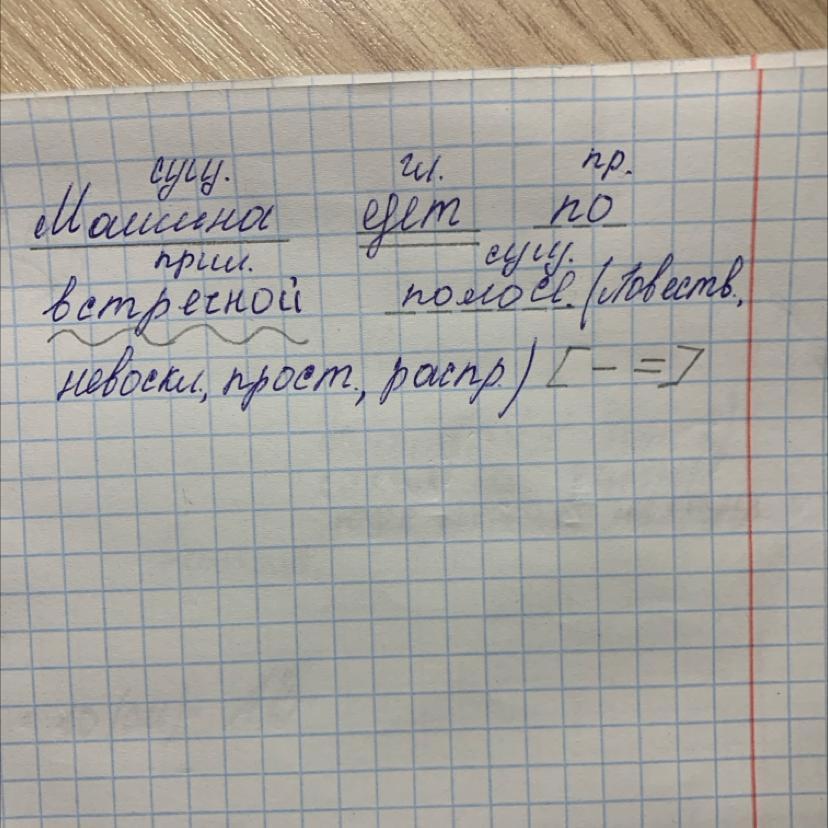 сущ. гл. пр.
Машина едет по
прил. сущ.
встречной полосе. (Повеств.,
невоскл., прост., распр.) [- =]